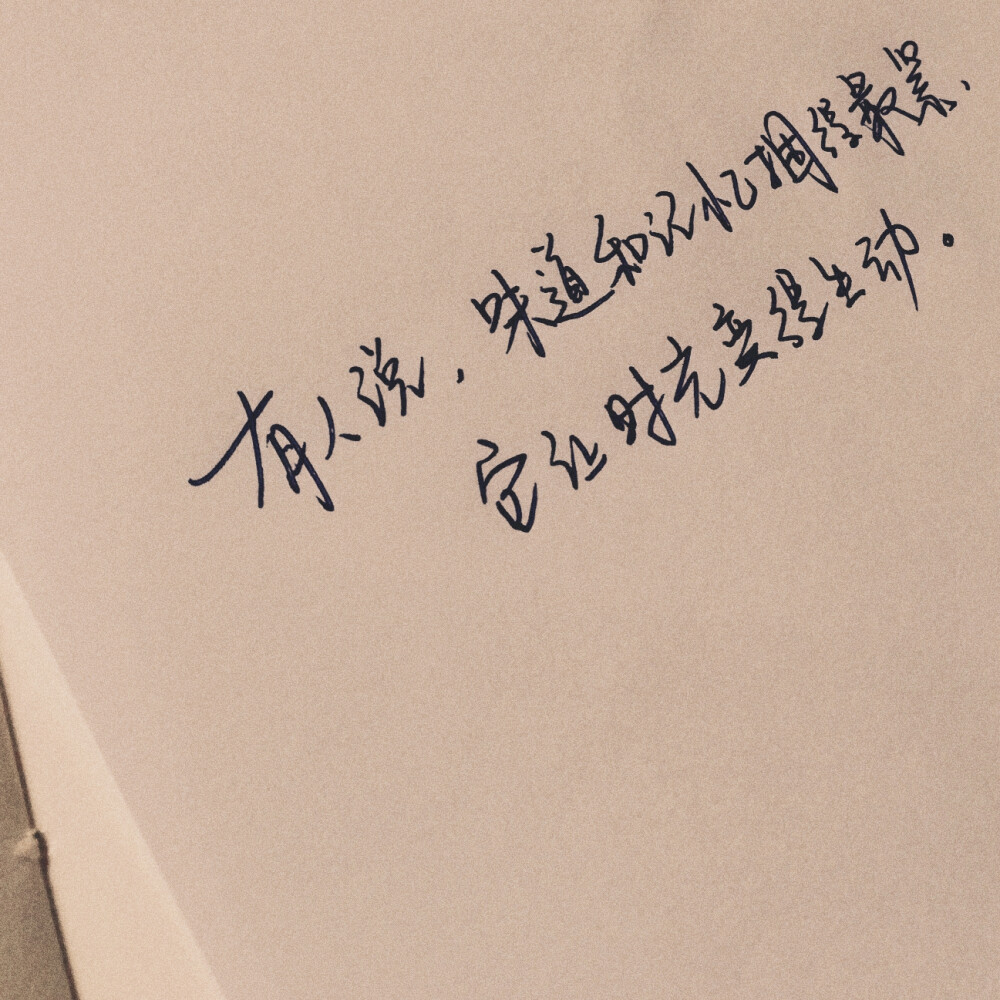 有人说，味道和记忆捆得最紧、
它让时光变得生动。